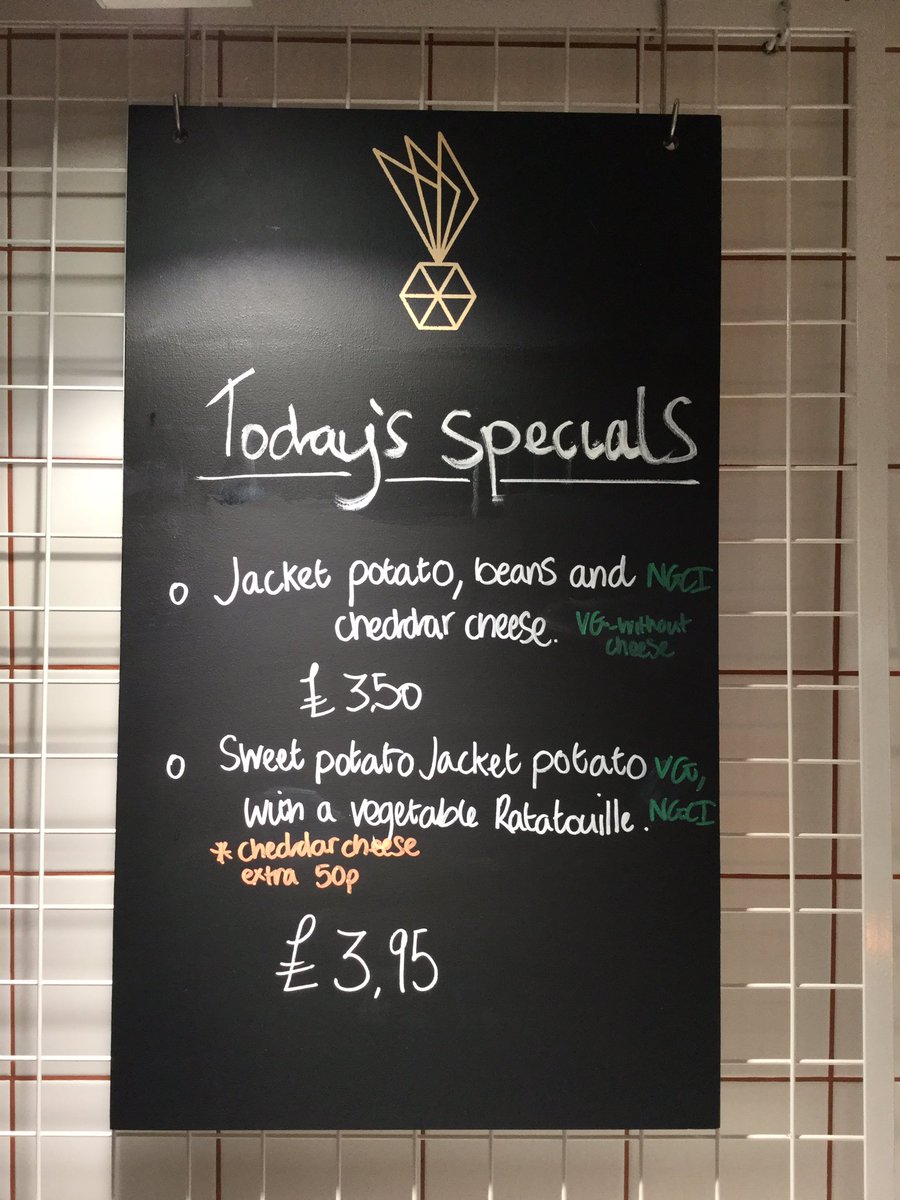 Today's specials
o Jacket potato, beans and NGCI
cheddar cheese. VG-without
cheese
£3,50
o Sweet potato Jacket potato VG,
with a vegetable Ratatouille. NGCI
* cheddar cheese
extra 50p
£3,95